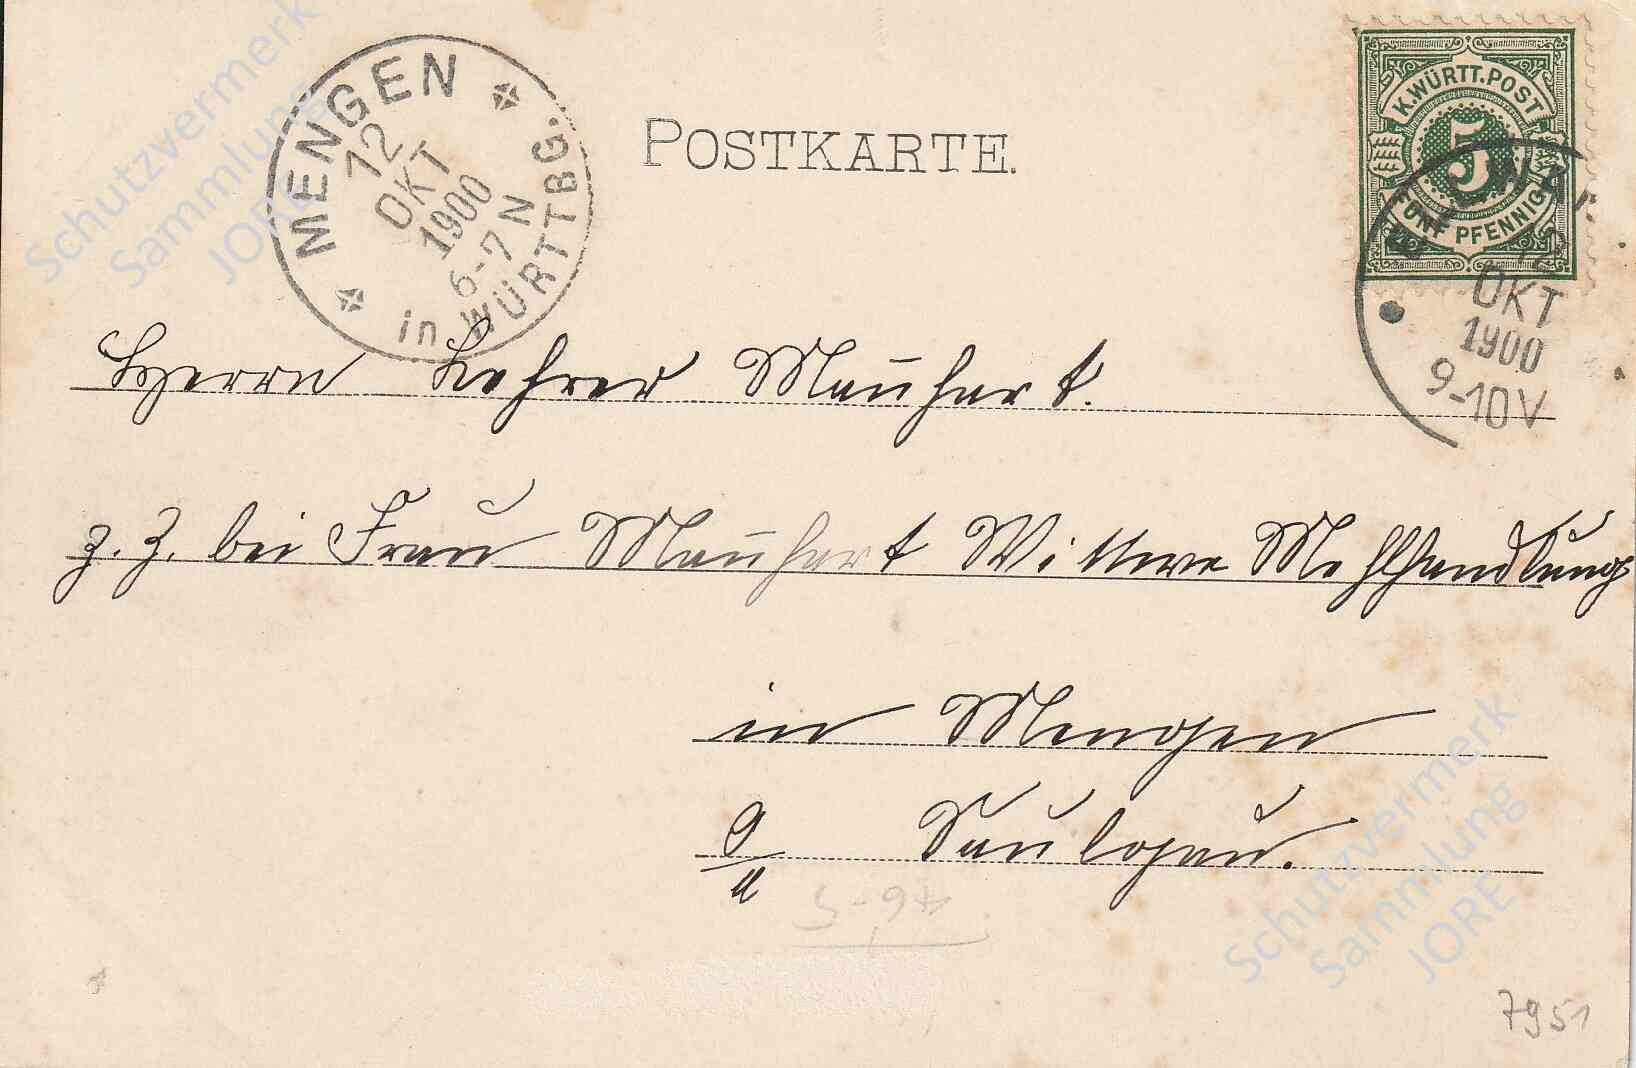 MENGEN
12
OKT
1900
6-7 N
in WÜRTTBG.
POSTKARTE.
K. WÜRTT. POST
5
FÜNF PFENNIG
OKT
1900
9-10V
Herrn Lehrer Mauhart.
z. Z. bei Frau Mauhart Wittwe Mehlhandlung
in Mengen
O/A Saulgau.
7951
Schutzvermerk
Sammlung
JORE
Schutzvermerk
Sammlung
JORE